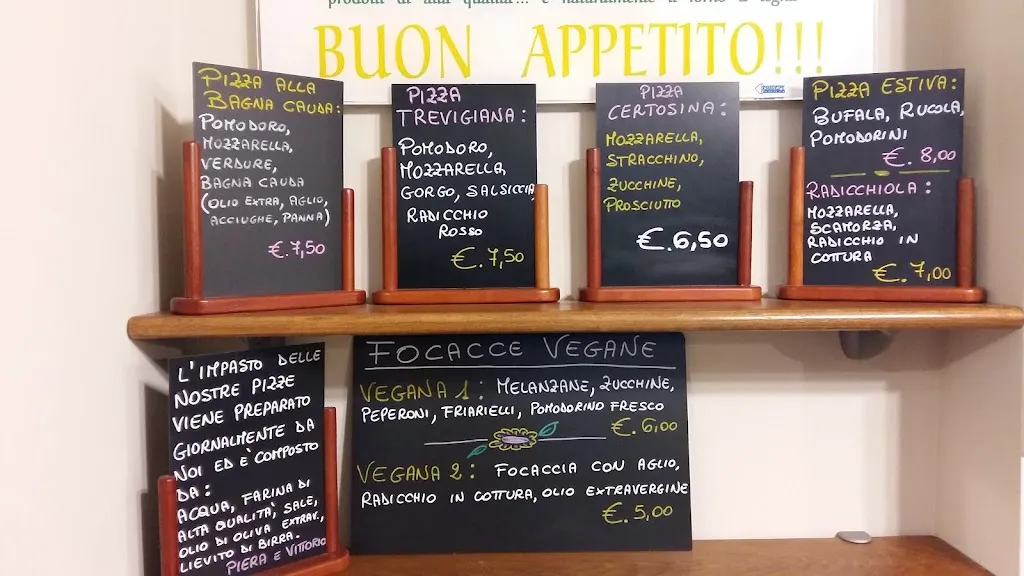 prodotti di alta qualità... e naturalmente il forno a legna
BUON APPETITO!!!
PIZZA ALLA
BAGNA CAUDA:
POMODORO,
MOZZARELLA,
VERDURE,
BAGNA CAUDA
(OLIO EXTRA, AGLIO,
ACCIUGHE, PANNA)
€.7,50
PIZZA
TREVIGIANA:
POMODORO,
MOZZARELLA
GORGO, SALSICCIA,
RADICCHIO
ROSSO
€.7,50
PIZZA
CERTOSINA:
MOZZARELLA,
STRACCHINO,
ZUCCHINE,
PROSCIUTTO
€.6,50
PIZZA ESTIVA:
BUFALA, RUCOLA,
POMODORINI
€.8,00
RADICCHIOLA:
MOZZARELLA,
SCAMORZA,
RADICCHIO IN
COTTURA
€.7,00
L'IMPASTO DELLE
NOSTRE PIZZE
VIENE PREPARATO
GIORNALMENTE DA
NOI ED E' COMPOSTO
DA:
ACQUA, FARINA DI
ALTA QUALITA', SALE,
OLIO DI OLIVA EXTRAV.,
LIEVITO DI BIRRA.
PIERA E VITTORIO
FOCACCE VEGANE
VEGANA 1: MELANZANE, ZUCCHINE,
PEPERONI, FRIARIELLI, POMODORINO FRESCO
€.6,00
VEGANA 2: FOCACCIA CON AGLIO,
RADICCHIO IN COTTURA, OLIO EXTRAVERGINE
€.5,00